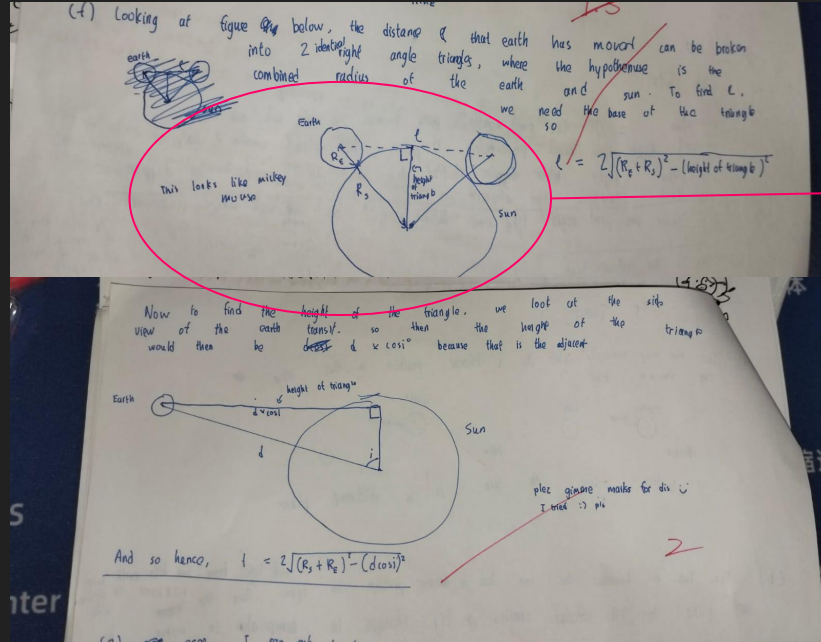 (f) Looking at figure below, the distance l that earth has moved can be broken
into 2 identical right angle triangles, where the hypothenuse is the
combined radius of the earth and sun. To find l,
we need the base of the triangle
so
l = 2√(R_E + R_S)² - (height of triangle)²
earth
sun
Earth
l
R_E
R_S
height of triangle
Sun
This looks like mickey
mouse
Now to find the height of the triangle, we look at the side
view of the earth transit. so then the height of the triangle
would then be d x cosi° because that is the adjacent
height of triangle
Earth
d x cosi
d
i
Sun
plez gimme marks for dis
I tried :) pls
2
And so hence, l = 2√(R_S + R_E)² - (dcosi)²
S
nter